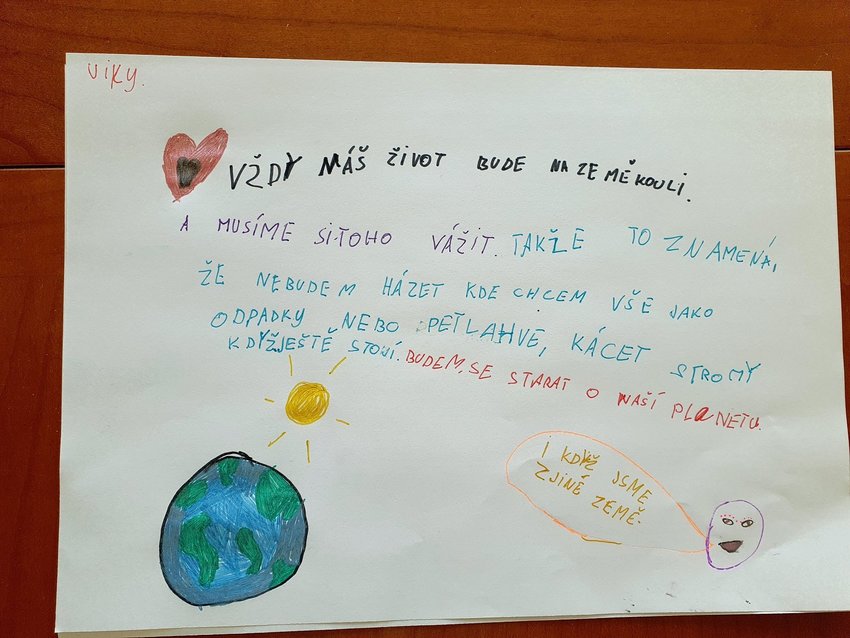 Viky.
VŽDY MÁŠ ŽIVOT BUDE NA ZEMĚKOULI.
A MUSÍME SITOHO VÁŽIT. TAKŽE TO ZNAMENÁ,
ŽE NEBUDEM HÁZET KDE CHCEM VŠE JAKO
ODPADKY NEBO PETLAHVE, KÁCET STROMY
KDYŽJEŠTĚ STOJÍ. BUDEM SE STARAT O NAŠÍ PLANETU.
I KDYŽ JSME
ZJINÉ ZEMĚ.